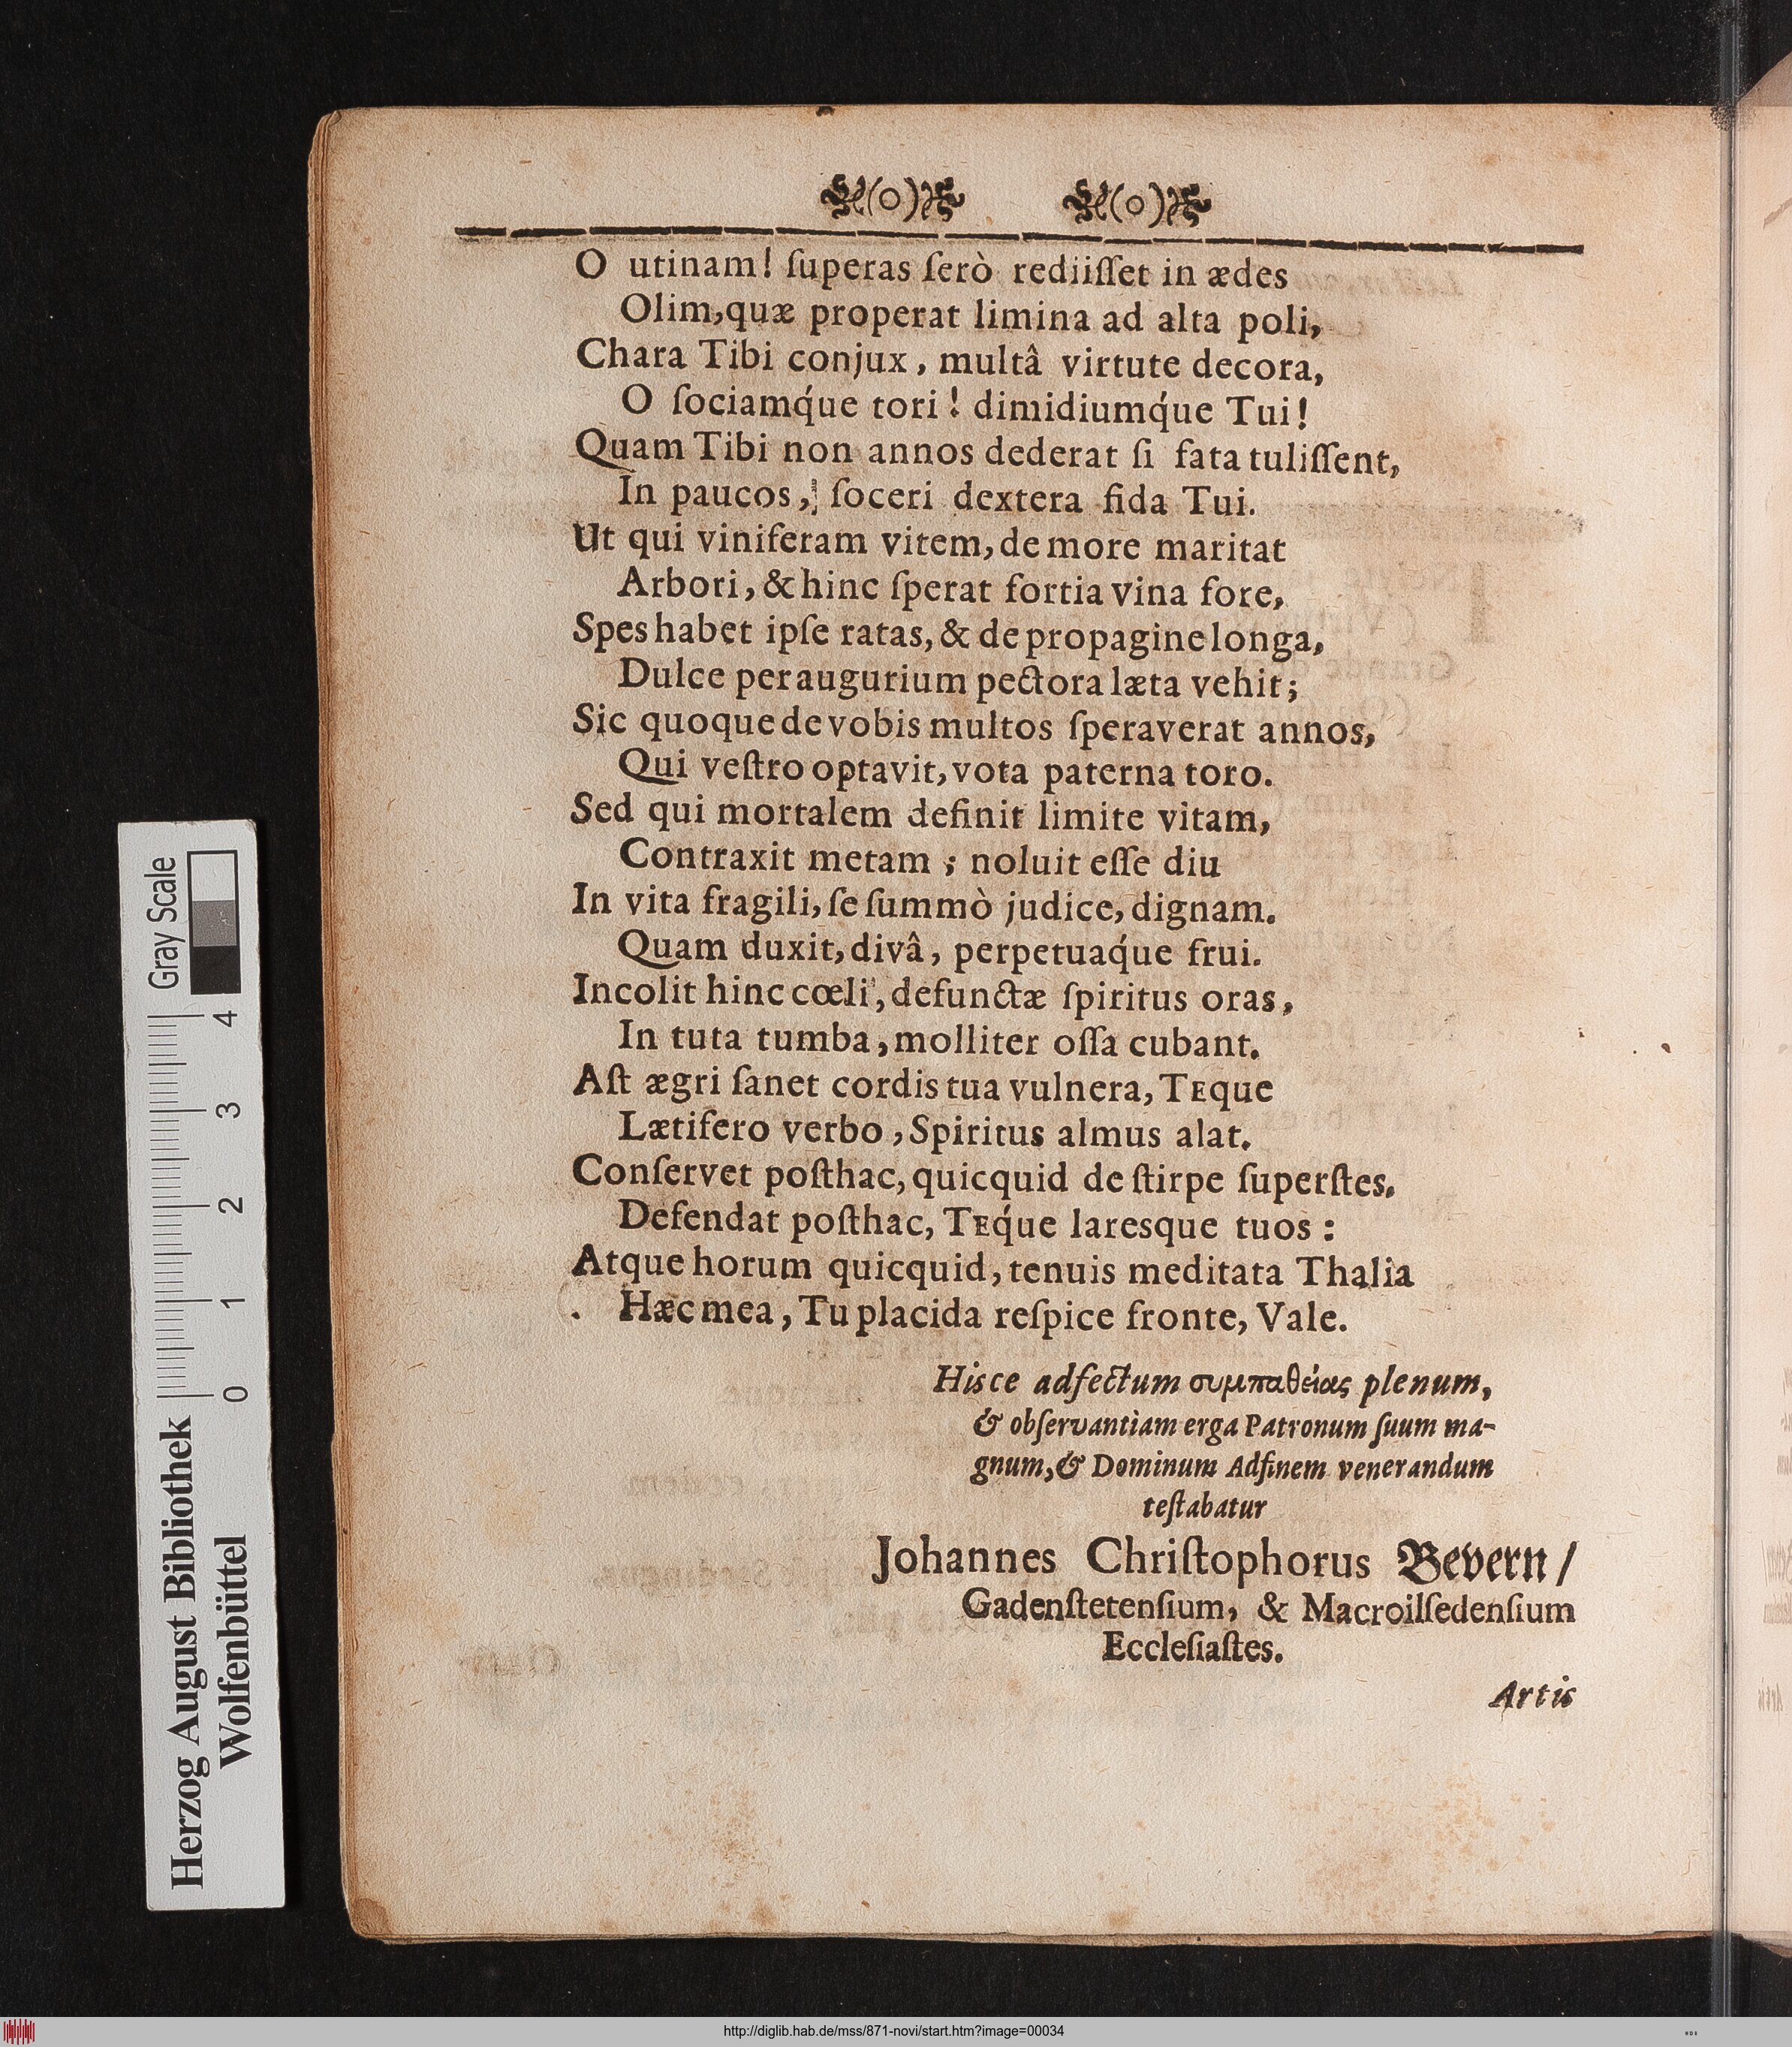 (o) (o)
O utinam! ſuperas ſerò rediiſſet in ædes
Olim,quæ properat limina ad alta poli,
Chara Tibi conjux, multâ virtute decora,
O ſociamq́ue tori! dimidiumq́ue Tui!
Quam Tibi non annos dederat ſi fata tuliſſent,
In paucos, ſoceri dextera fida Tui.
Ut qui viniferam vitem, de more maritat
Arbori, & hinc ſperat fortia vina fore,
Spes habet ipſe ratas, & de propagine longa,
Dulce per augurium pectora læta vehit;
Sic quoque de vobis multos ſperaverat annos,
Qui veſtro optavit, vota paterna toro.
Sed qui mortalem definit limite vitam,
Contraxit metam ; noluit eſſe diu
In vita fragili, ſe ſummò judice, dignam.
Quam duxit, divâ, perpetuaq́ue frui.
Incolit hinc cœli, defunctæ ſpiritus oras,
In tuta tumba, molliter oſſa cubant.
Aſt ægri ſanet cordis tua vulnera, TEque
Lætifero verbo, Spiritus almus alat.
Conſervet poſthac, quicquid de ſtirpe ſuperſtes.
Defendat poſthac, TEq́ue laresque tuos :
Atque horum quicquid, tenuis meditata Thalia
. Hæc mea, Tu placida reſpice fronte, Vale.
Hisce adfectum συμπαθείας plenum,
& obſervantiam erga Patronum ſuum ma-
gnum, & Dominum Adfinem venerandum
teſtabatur
Johannes Chriſtophorus Bevern /
Gadenſtetenſium, & Macroilſedenſium
Eccleſiaſtes.
Artis
Herzog August Bibliothek
Wolfenbüttel
0 1 2 3 4
Gray Scale
http://diglib.hab.de/mss/871-novi/start.htm?image=00034